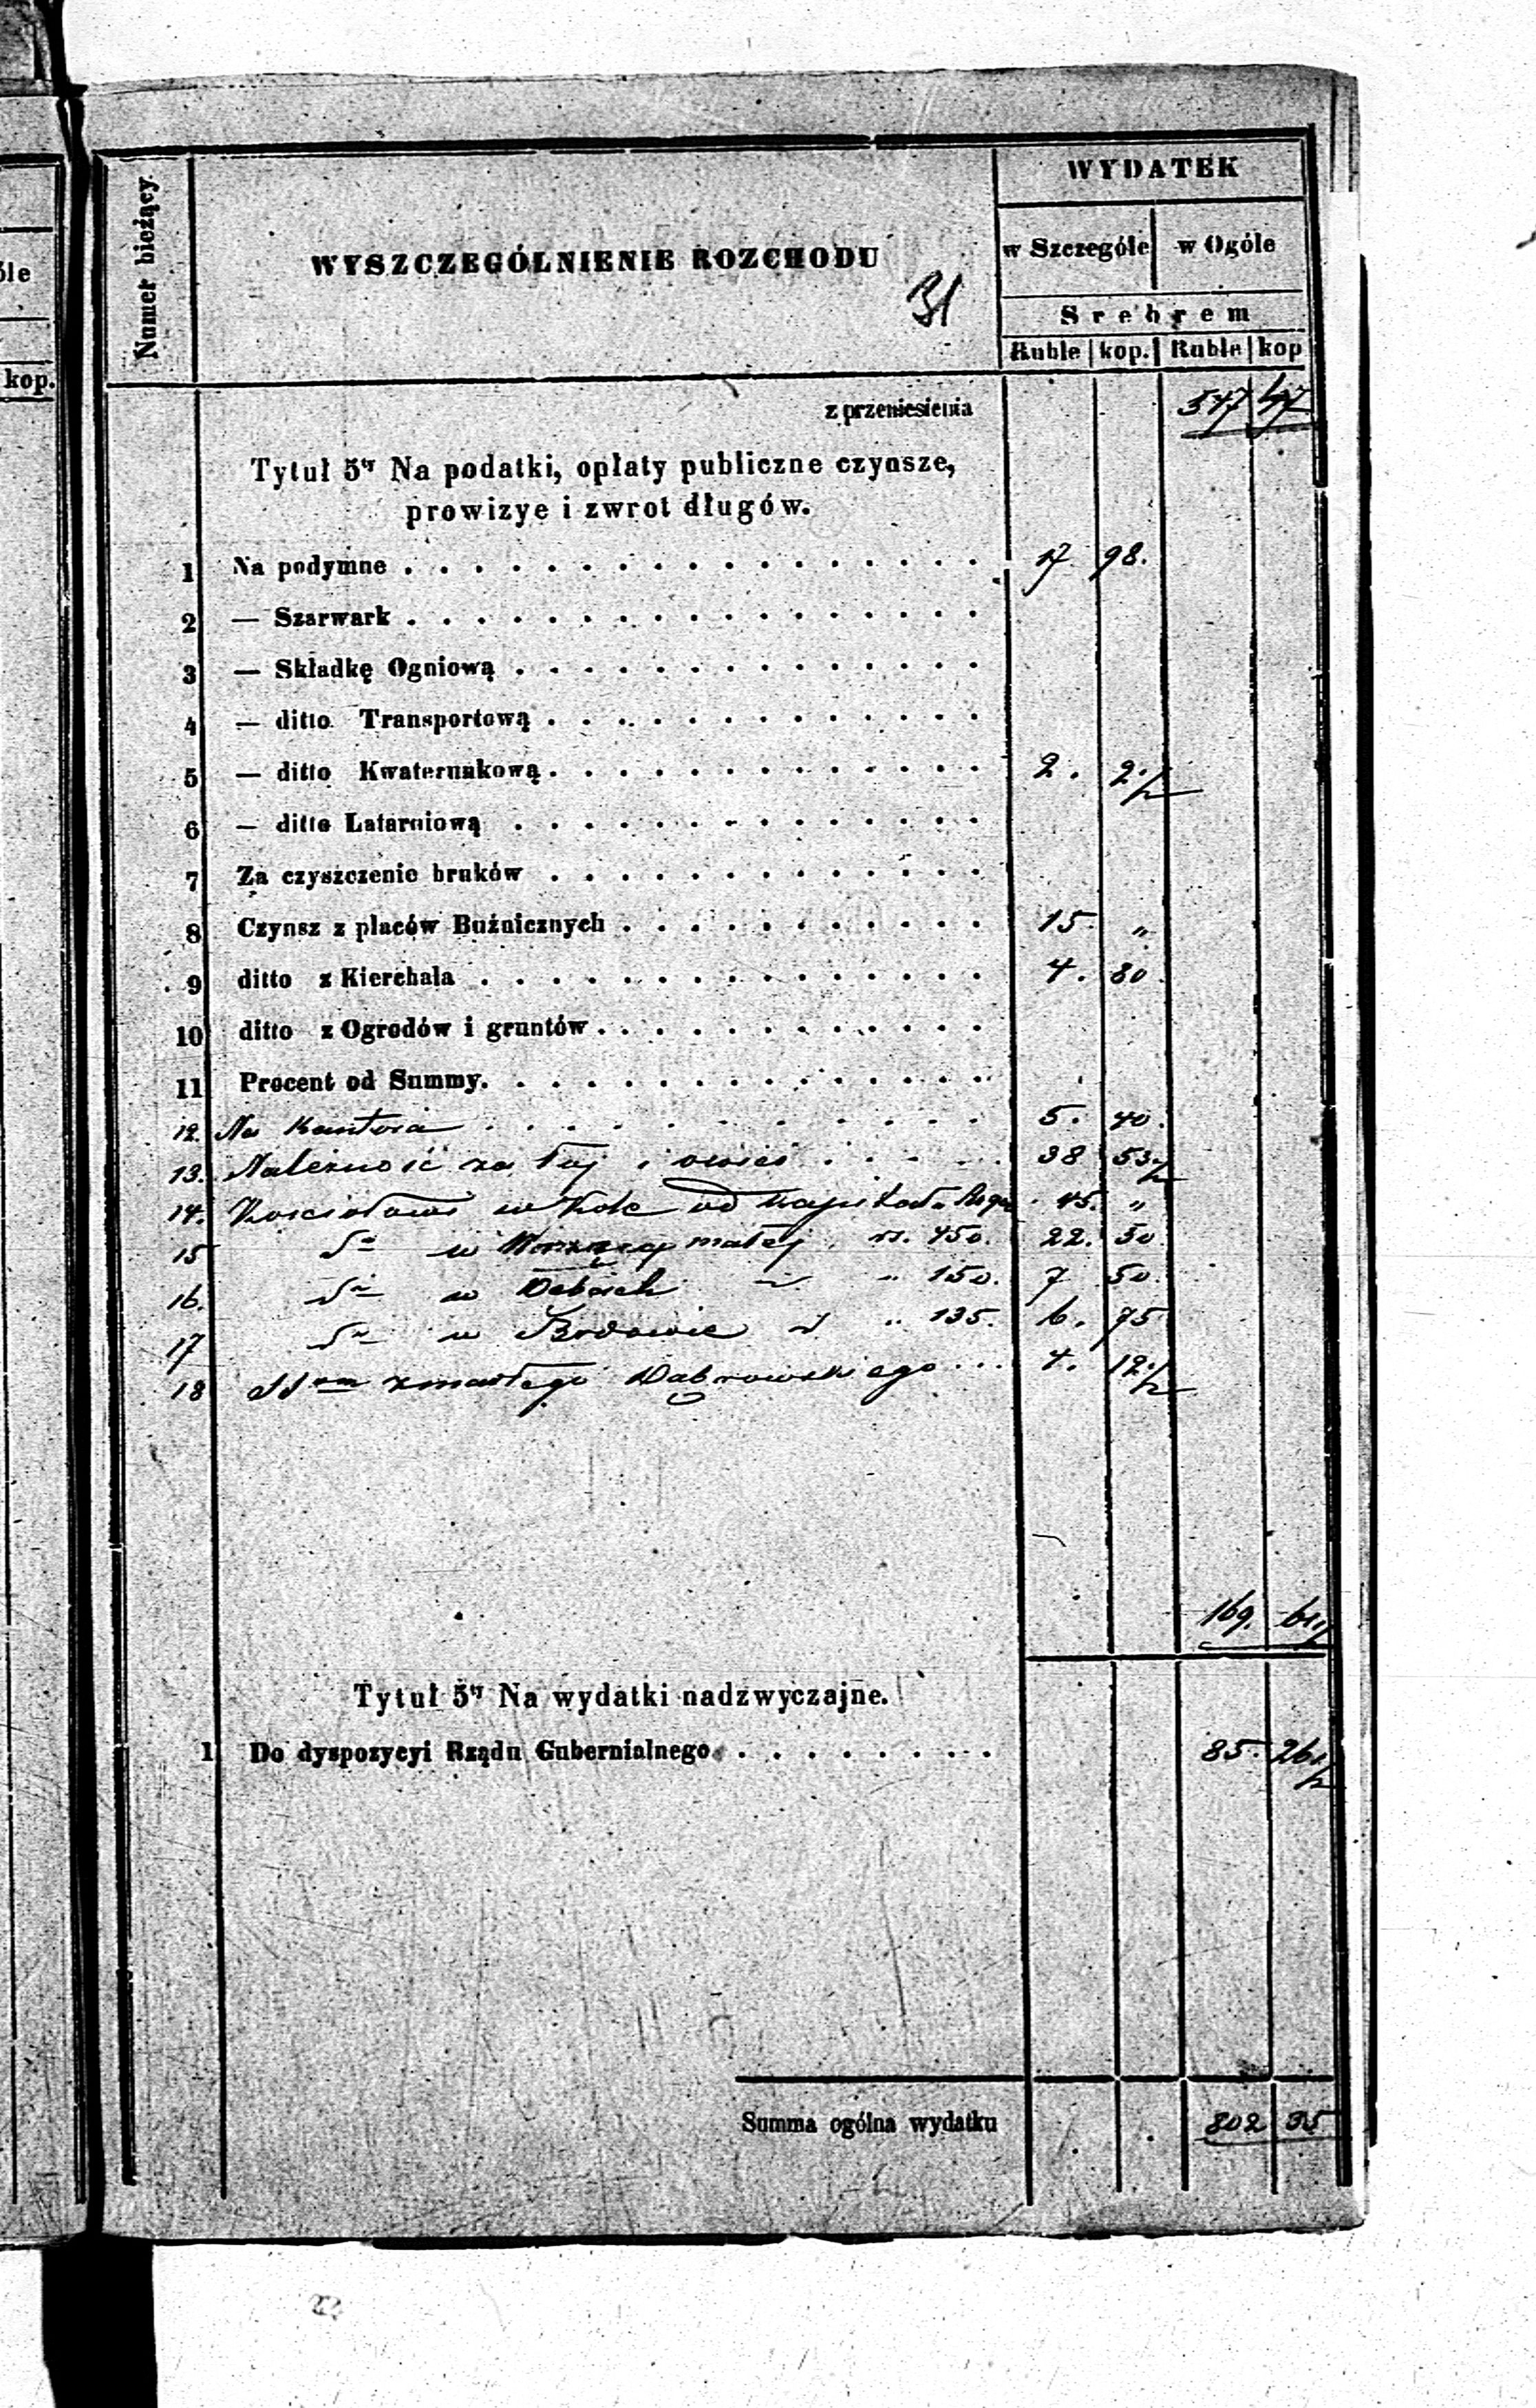 óle
kop.
Numer bieżący.
WYSZCZEGÓLNIENIE ROZCHODU
31
WYDATEK
w Szczególe w Ogóle
Srebrem
Ruble kop. Ruble kop
z przeniesienia 547 47
Tytuł 5ty Na podatki, opłaty publiczne czynsze,
prowizye i zwrot długów.
1 Na podymne 17 98.
2 — Szarwark
3 — Składkę Ogniową
4 — ditto Transportową
5 — ditto Kwaterunkową 2. 2 1/2
6 — ditto Latarniową
7 Za czyszczenie bruków
8 Czynsz z placów Bużnicznych 15. „
9 ditto z Kierchala 4. 80
10 ditto z Ogrodów i gruntów
11 Procent od Summy.
12. Na Kantora 5. 40.
13. Należność za łuj i 38 53 1/2
14. Kościołowi w Kole od kapitału 45. „
15 Do w małej rs. 450. 22. 50
16. Do w Dębach „ 150. 7 50
17 Do w „ 135. 6. 75
18 zmarłego Dąbrowskiego 4. 12 1/2
169. 61 1/2
Tytuł 5ty Na wydatki nadzwyczajne.
1 Do dyspozycyi Rządu Gubernialnego 85. 26 1/2
Summa ogólna wydatku 802 35